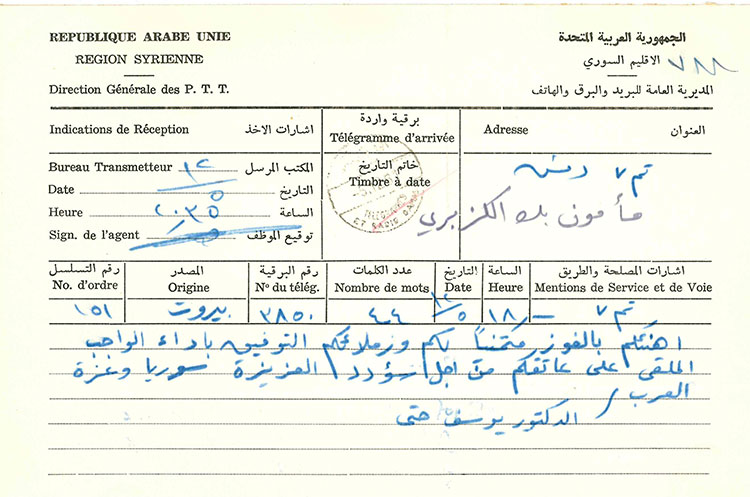 REPUBLIQUE ARABE UNIE
الجمهورية العربية المتحدة
REGION SYRIENNE
الاقليم السوري
Direction Générale des P. T. T.
المديرية العامة للبريد والبرق والهاتف
Indications de Réception
اشارات الاخذ
برقية واردة
Télégramme d'arrivée
Adresse
العنوان
Bureau Transmetteur ١٢ المكتب المرسل
Date ٥ التاريخ
Heure ٢٠٣٥ الساعة
Sign. de l'agent توقيع الموظف
خاتم التاريخ
Timbre à date
دمشق
مأمون بك الكزبري
رقم التسلسل
No. d'ordre
المصدر
Origine
رقم البرقية
No du télég.
عدد الكلمات
Nombre de mots
التاريخ
Date
الساعة
Heure
اشارات المصلحة والطريق
Mentions de Service et de Voie
١٥١
بيروت
٣٨٥٠
٤٤
١٢/٥
١٨
اهنئكم بالفوز متمنياً لكم وزملائكم التوفيق باداء الواجب
الملقى على عاتقكم من اجل سؤدد العزيزة سوريا وعزة
العرب /
الدكتور يوسف حتى